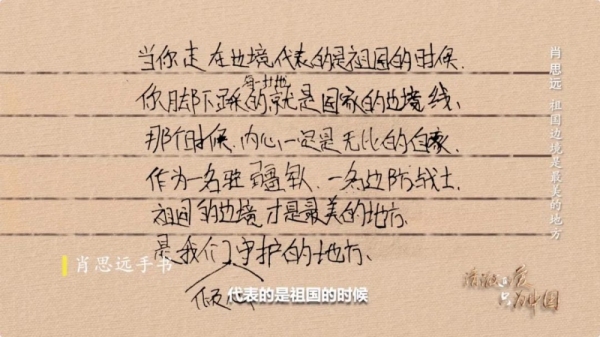 当你走在边境代表的是祖国的时候.
每一寸地
你脚下踩的就是国家的边境线、
那个时候、内心一定是无比的自豪、
作为一名驻疆军人、一名边防战士.
祖国的边境才是最美的地方.
是我们守护的地方、
肖思远手书
代表的是祖国的时候
肖思远 祖国边境是最美的地方